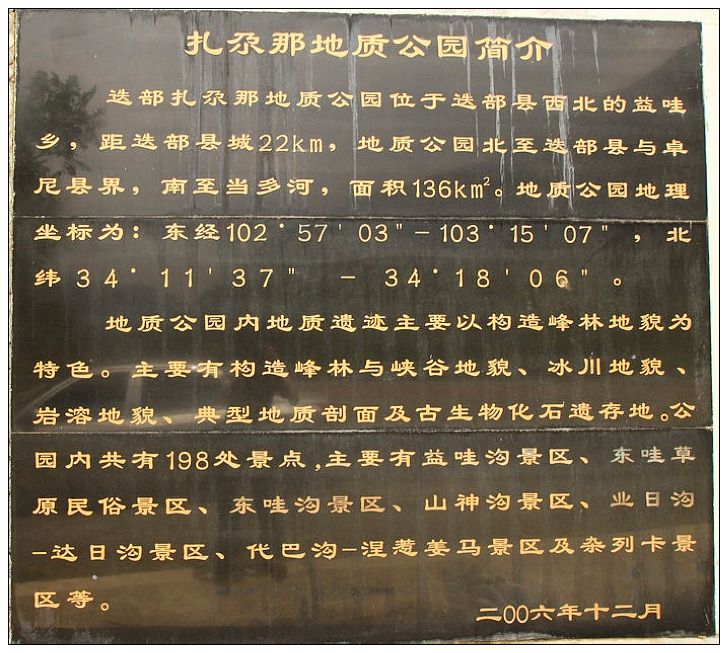 扎尕那地质公园简介
迭部扎尕那地质公园位于迭部县西北的益哇
乡，距迭部县城22km，地质公园北至迭部县与卓
尼县界，南至当多河，面积136km²。地质公园地理
坐标为：东经102°57'03"-103°15'07"，北
纬34°11'37" - 34°18'06"。
地质公园内地质遗迹主要以构造峰林地貌为
特色。主要有构造峰林与峡谷地貌、冰川地貌、
岩溶地貌、典型地质剖面及古生物化石遗存地。公
园内共有198处景点,主要有益哇沟景区、东哇草
原民俗景区、东哇沟景区、山神沟景区、业日沟
-达日沟景区、代巴沟-涅惹姜马景区及杂列卡景
区等。
二〇〇六年十二月